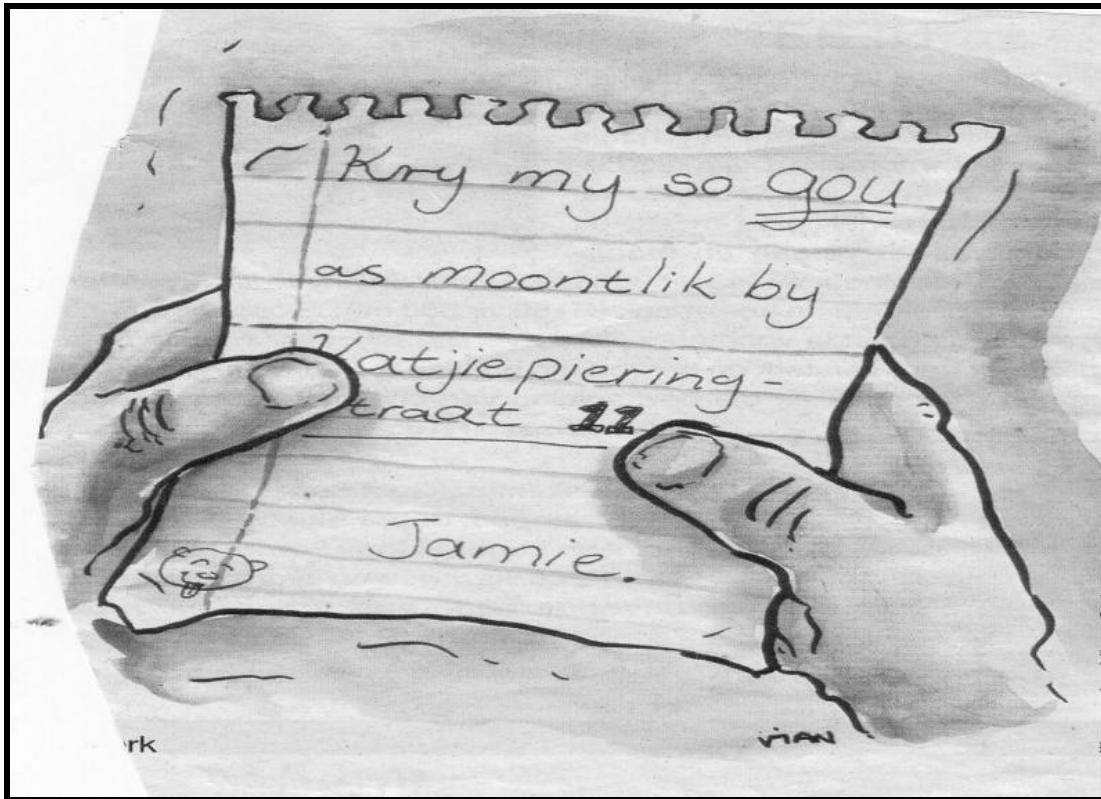 Kry my so gou
as moontlik by
Katjiepiering-
traat 11
Jamie.
rk
VIAN